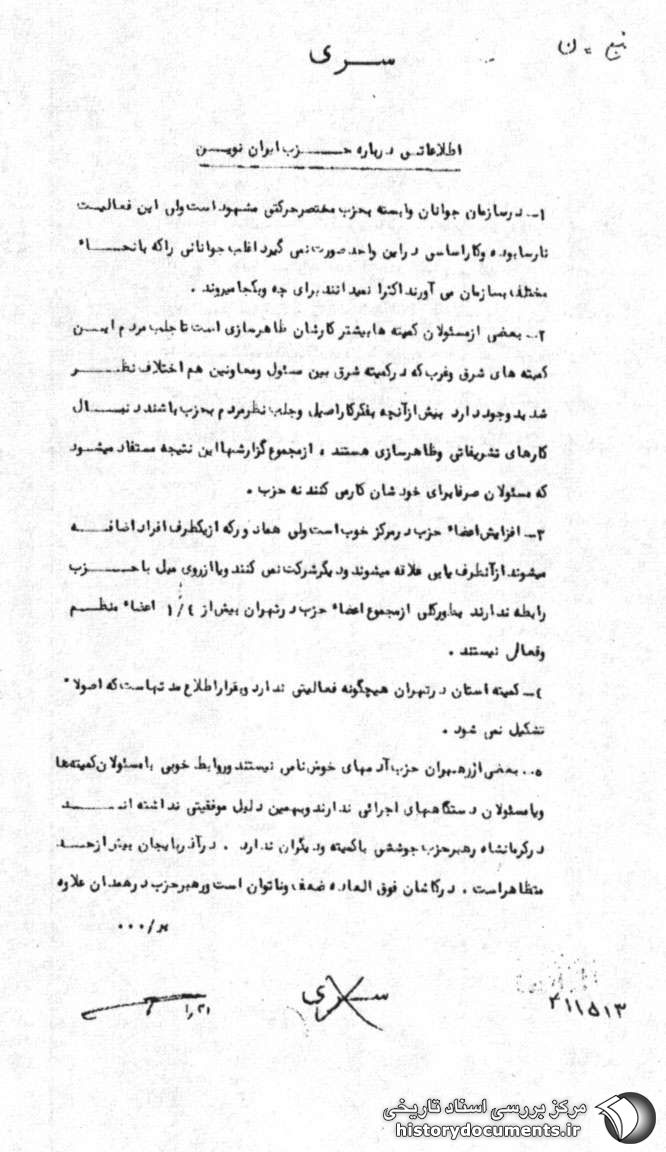 سری
اطلاعاتی درباره حزب ایران نوین
۱- در سازمان جوانان وابسته بحزب مختصر حرکتی مشهود است ولی این فعالیت
نارسا بوده و کار اساسی در این واحد صورت نمی گیرد اغلب جوانانی را که بانحاء
مختلف بسازمان می آورند اکثرا نمیدانند برای چه و بکجا میروند .
۲- بعضی از مسئولان کمیته ها بیشتر کارشان ظاهرسازی است تا جلب مردم این
کمیته های شرق و غرب که در کمیته شرق بین مسئول و معاونین هم اختلاف نظر
شدید وجود دارد بیش از آنچه بفکر کار اصیل و جلب نظر مردم بحزب باشند دنبال
کارهای تشریفاتی و ظاهرسازی هستند ، از مجموع گزارشها این نتیجه مستفاد میشود
که مسئولان صرفا برای خودشان کار می کنند نه حزب .
۳- افزایش اعضاء حزب در مرکز خوب است ولی همانطور که از یکطرف افراد اضافه
میشوند از آنطرف یا بی علاقه میشوند و دیگر شرکت نمی کنند و یا از روی میل با حزب
رابطه ندارند بطور کلی از مجموع اعضاء حزب در تهران بیش از ۱/۴ اعضاء منظم
و فعال نیستند .
۴- کمیته استان در تهران هیچگونه فعالیتی ندارد و بقرار اطلاع مدتهاست که اصولا"
تشکیل نمی شود .
۵- بعضی از رهبران حزب آدمهای خوش نامی نیستند و روابط خوبی با مسئولان کمیته ها
و یا مسئولان دستگاههای اجرائی ندارند و بهمین دلیل موفقیتی نداشته اند
در کرمانشاه رهبر حزب جوششی با کمیته و دیگران ندارد . در آذربایجان بیش از حد
متظاهر است . در کاشان فوق العاده ضعیف و ناتوان است و رهبر حزب در همدان علاوه
بر/۰۰۰
سری
۴۱۱۵۱۳
مرکز بررسی اسناد تاریخی
historydocuments.ir